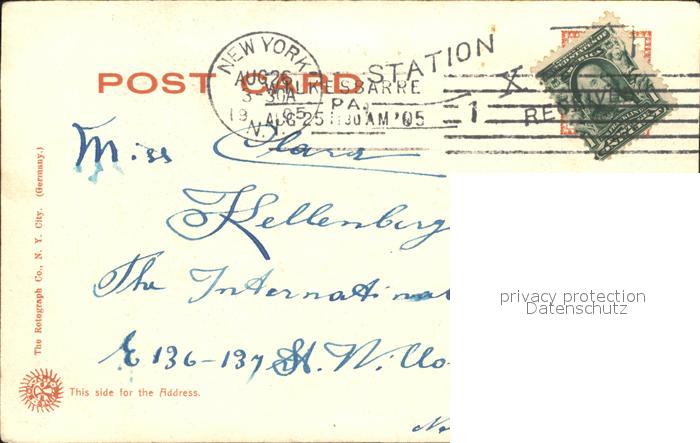 NEW YORK, N.Y. STATION
AUG 26
3-30A
1905
WILKES BARRE
PA.
AUG 25 11 30 AM '05
1
X
RECEIVED
POST CARD
Miss Clara
Kellenberg
The Internation
E 136-137 St. N. Co
The Rotograph Co., N. Y. City. (Germany.)
This side for the Address.
privacy protection
Datenschutz